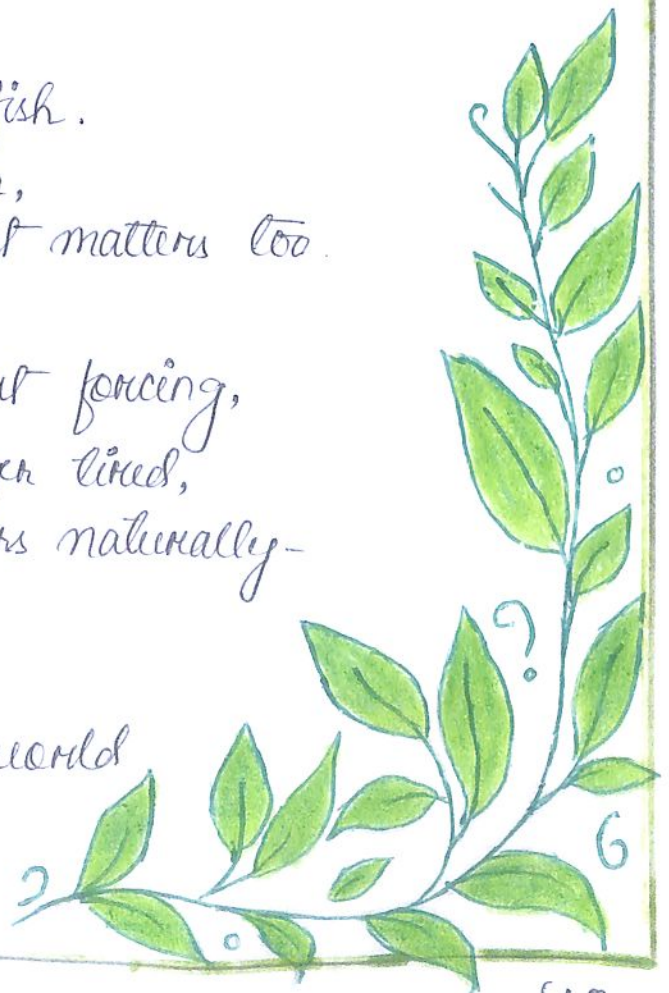 ish.
,
t matters too.
t forcing,
tired,
rs naturally-
world